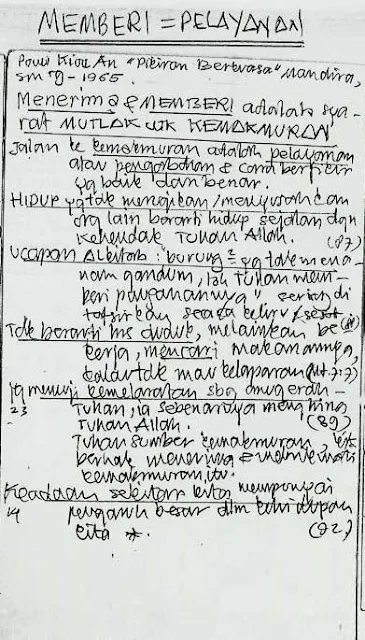 MEMBERI = PELAYANAN
Pouw Kiou An "Pikiran Berkuasa" Mandira,
smg - 1965.
Menerima & MEMBERI adalah sya-
rat MUTLAK utk KEMAKMURAN
Jalan ke kemakmuran adalah pelayanan
atau pengorbanan & cara berpikir
yg baik dan benar.
HIDUP yg tak merugikan/menyusahkan
org lain berarti hidup sejalan dgn
kehendak Tuhan Allah. (87)
Ucapan Alkitab: "burung = yg tak mena-
nam gandum, tah Tuhan mem-
beri pangananya" sering di
tafsirkan secara keliru
Tdk berarti hrs duduk, melainkan be
kerja, mencari makanannya,
kalau tdk mau kelaparan (Mt. 7:7)
Yg memuji kemelaratan sbg anugerah -
23 Tuhan, ia sebenarnya menghina
Tuhan Allah. (89)
Tuhan sumber kemakmuran,
berhak menerima & menikmati
kemakmuran itu.
Keadaan sekitar kita mempunyai
14 pengaruh besar dlm kehidupan
kita *. (92)